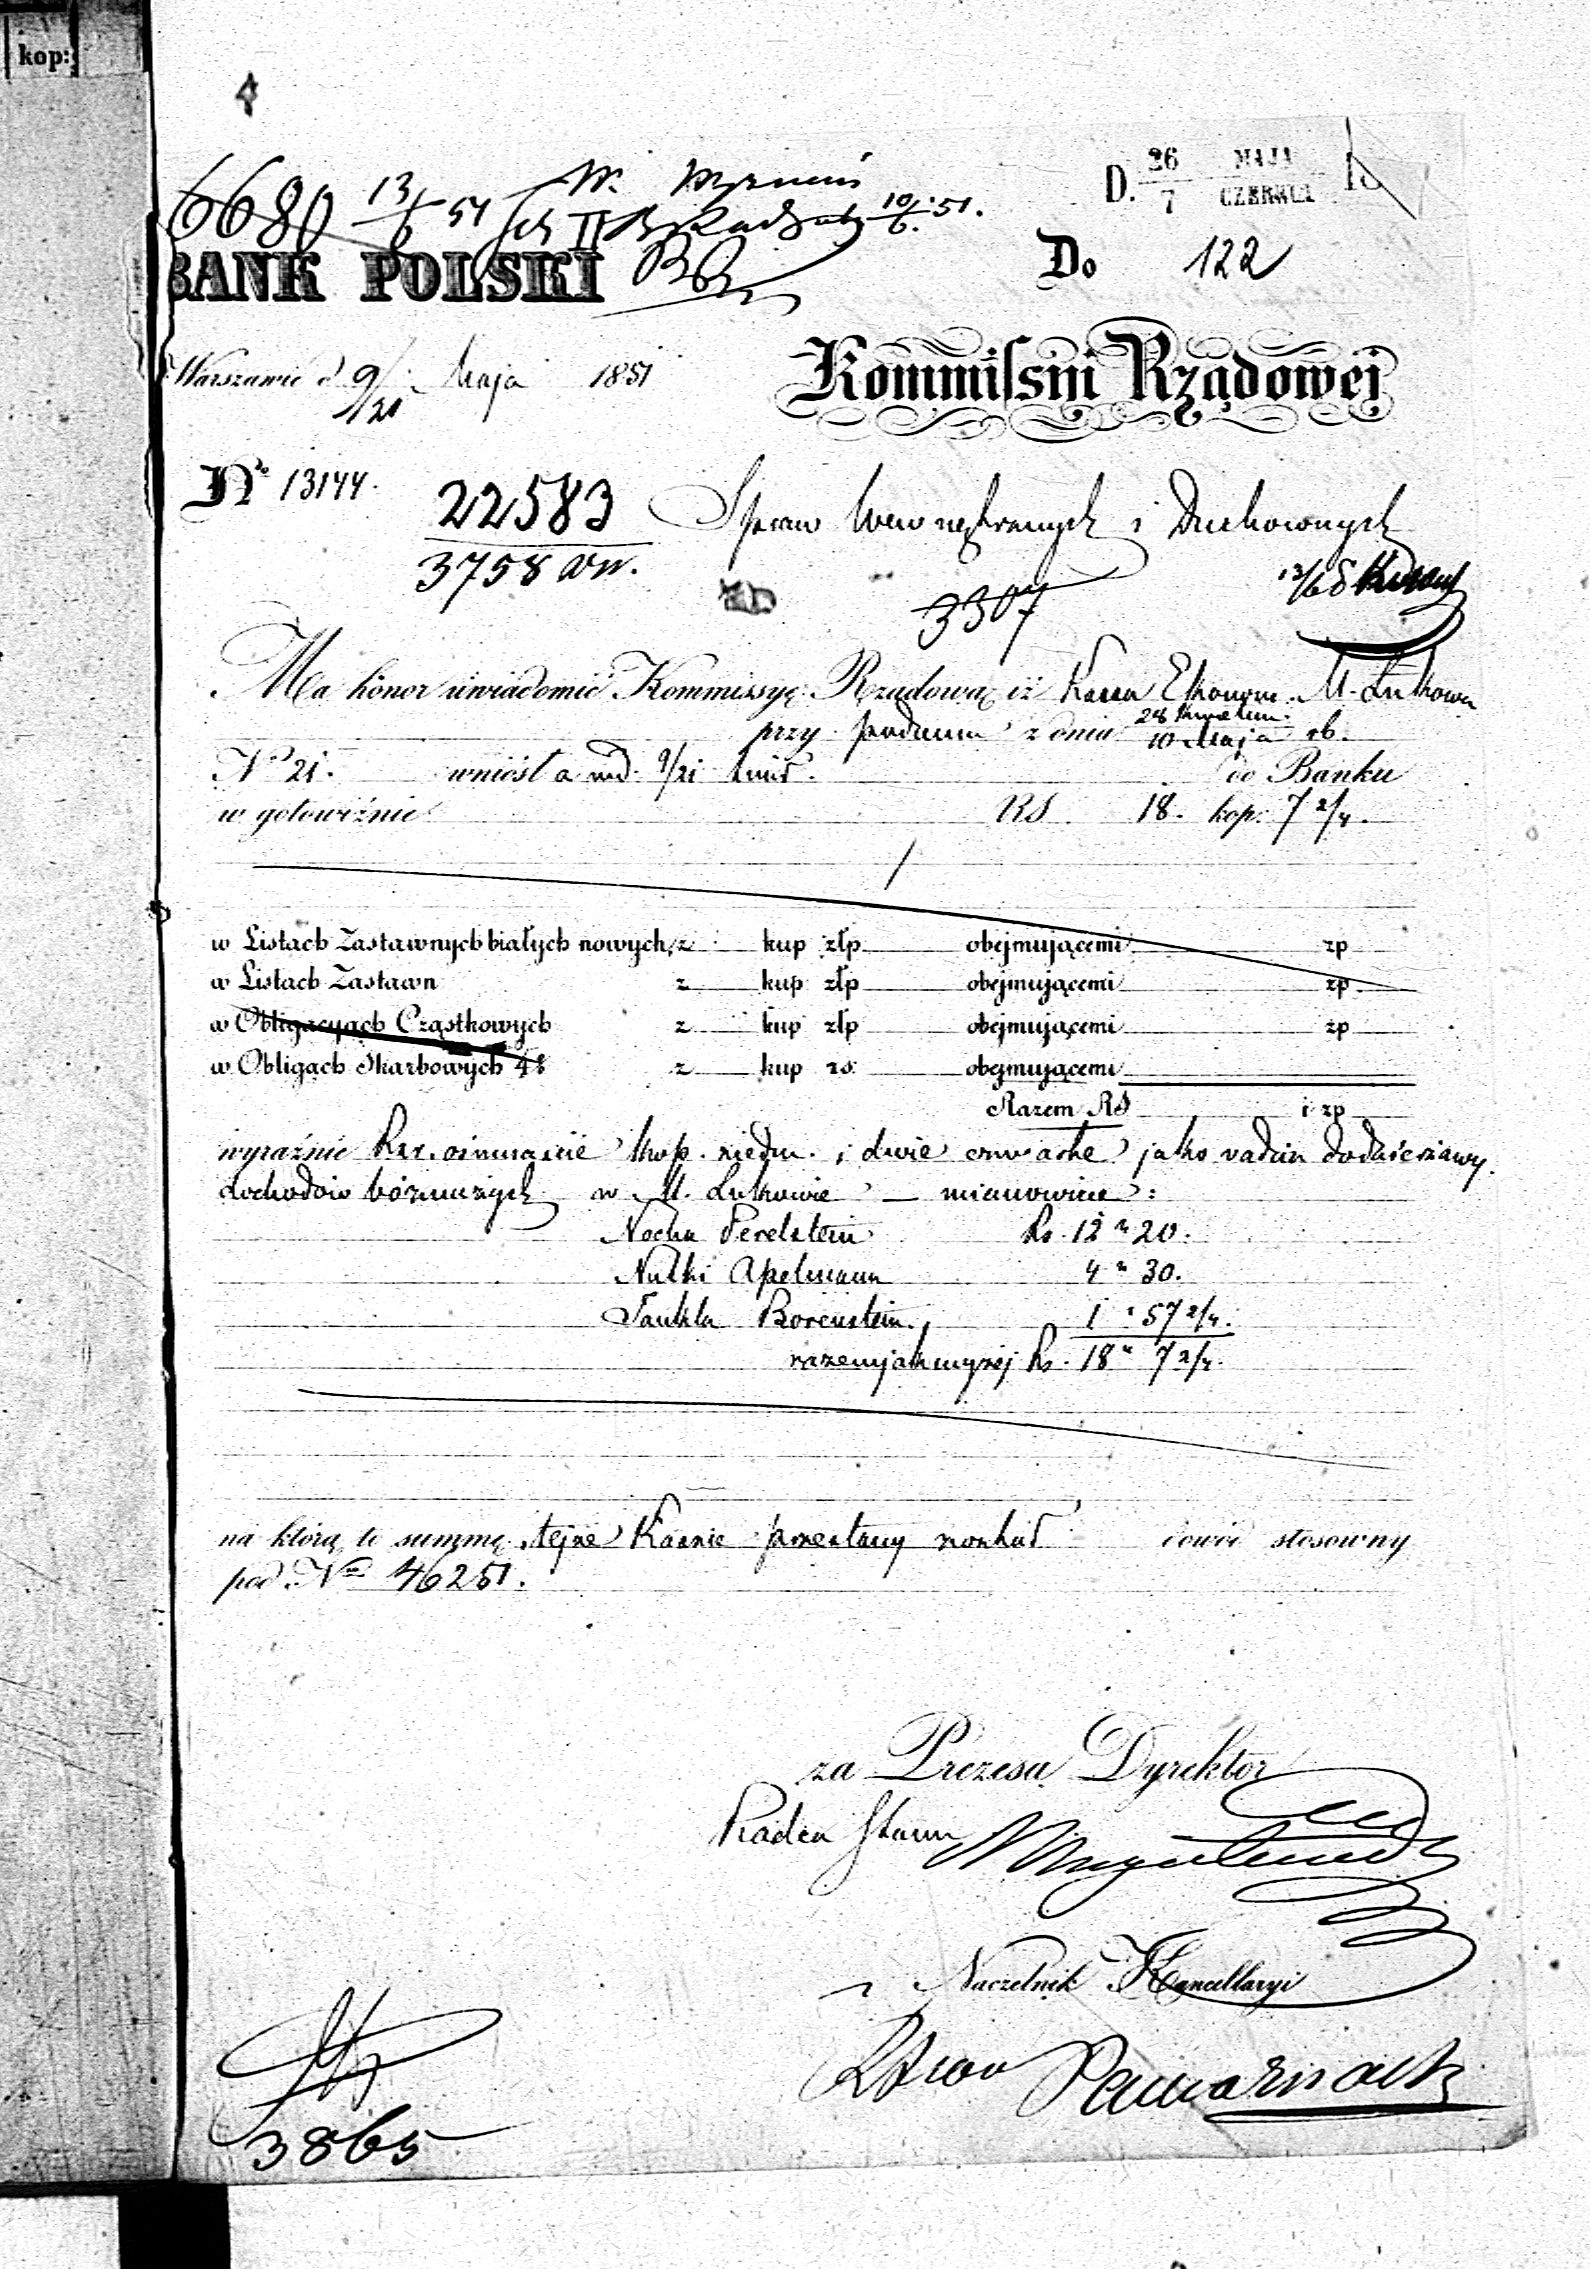 kop:
4
D. 26/7 MAJA CZERWCA 18
6680 13/6 51 W. II 10/6 51.
BANK POLSKI
Do 122
Warszawie d 9/21 Maja 1851
Kommissyi Rządowej
No 13144.
22583
3758 WW.
Spraw Wewnętrznych i Duchownych
13/6
3307
Ma honor uwiadomić Kommissyę Rządową iż Kassa Ekonom. M. Łukowa
przy podaniu z dnia 28 Kwietnia/10 Maja rb.
No 21. wniósł a nd. 9/21 do Banku
w gotowiźnie RS 18. kop. 7 2/4.
w Listach Zastawnych białych nowych z kup złp obejmującemi zp
w Listach Zastawn z kup złp obejmującemi zp
w Obligacyach Cząstkowych z kup złp obejmującemi zp
w Obligach Skarbowych 4% z kup rs: obejmującemi
Razem RS i zp
wyraźnie Rsr. ośmnaście kop. siedm i dwie czwarte jako vadia do dzierżawy
dochodów bóżniczych w M. Łukowie — mianowicie:
Nochu Perelstein Rs. 12 " 20.
Nutki Apelmann 4 " 30.
Jankla Borenstein 1 " 57 2/4.
razem jak wyżej Rs. 18 " 7 2/4.
na którą to summę tejże Kassie przesłany został dowód stosowny
pod Nem 46251.
za Prezesa Dyrektor
Radca Stanu
Naczelnik Kancellaryi
3865